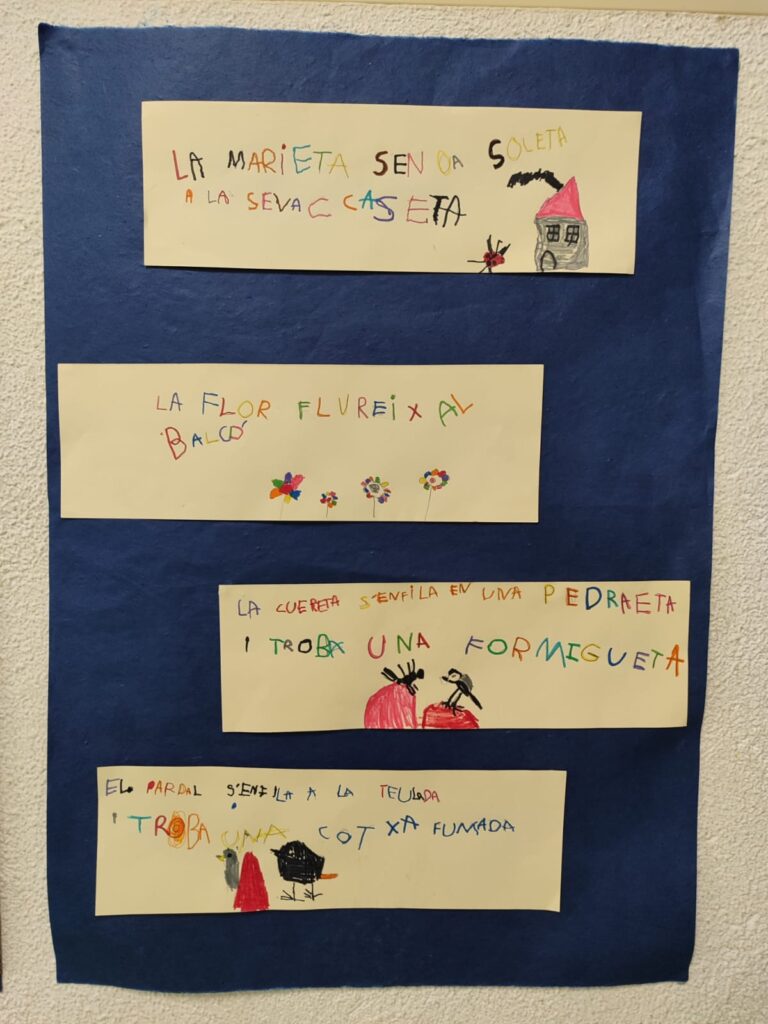 LA MARiETA SEN DA SOLETA
A LA SEVA C CASETA
LA FLOR FLUREiX AL
BALCÓ
LA CUERETA S'ENFILA EN UNA PEDRAETA
I TROBA UNA FORMIGUETA
EL PARDAL S'ENFILA A LA TEULADA
I TROBA UNA COTXA FUMADA